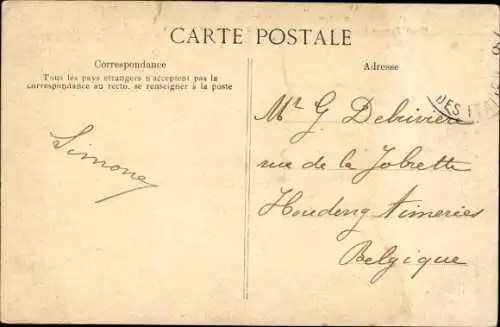 CARTE POSTALE
Correspondance
Tous les pays étrangers n'acceptent pas la
correspondance au recto, se renseigner à la poste
Simone
Adresse
Mr G Debrivière
rue de la Jobrette
Houdeng Aimeries
Belgique
DES